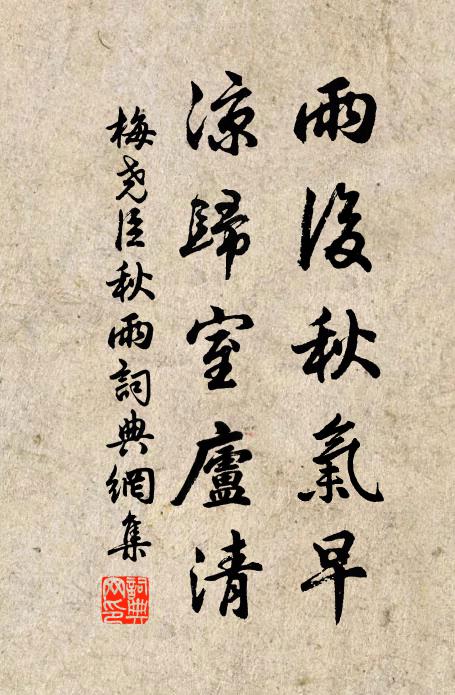 雨後秋氣早
涼歸室廬清
梅堯臣秋雨詞典網集
詞典網印